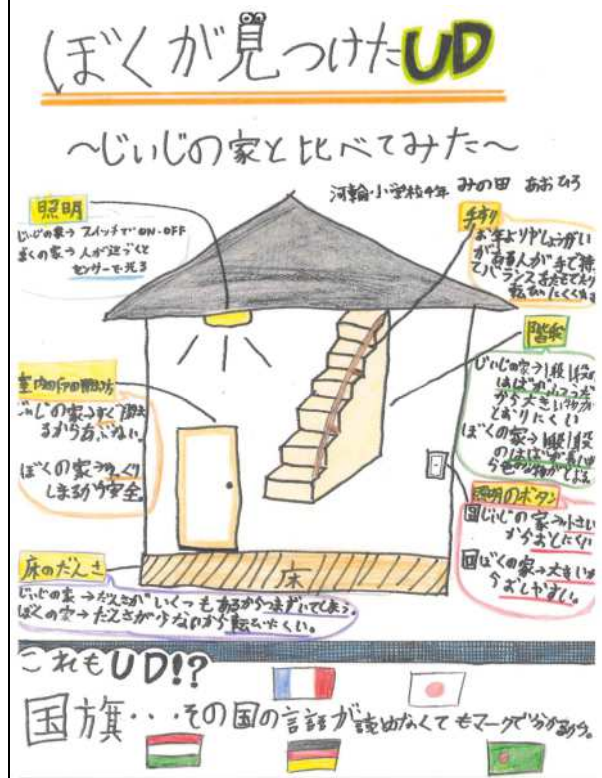 ぼくが見つけたUD
〜じいじの家と比べてみた〜
河輪小学校4年 みの田 あおひろ
照明
じいじの家→スイッチでON・OFF
ぼくの家→人が近づくと
センサーで光る
手すり
お年よりやしょうがい
がある人が手で持
てバランスをたもてたり
転びにくくなる
階段
じいじの家→1段1段の
はばがふつうだ
から大きい物が
とおりにくい
ぼくの家→1段1段
のはばが
室内のドアの開け方
じいじの家→すぐ
るからあぶない。
ぼくの家→ゆっくり
しまるから安全。
照明のボタン
じいじの家→小さい
からおしにくい
ぼくの家→大きいか
らおしやすい。
床のだんさ
床
じいじの家→だんさがいくつもあるからつまずいてしまう。
ぼくの家→だんさが少ないから転びにくい。
これもUD!?
国旗・・・その国の言語が読めなくてもマークで分かるから。